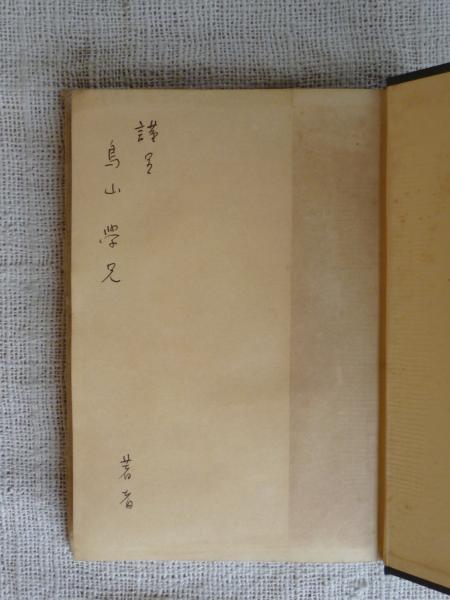 謹呈
鳥山學兄
著者